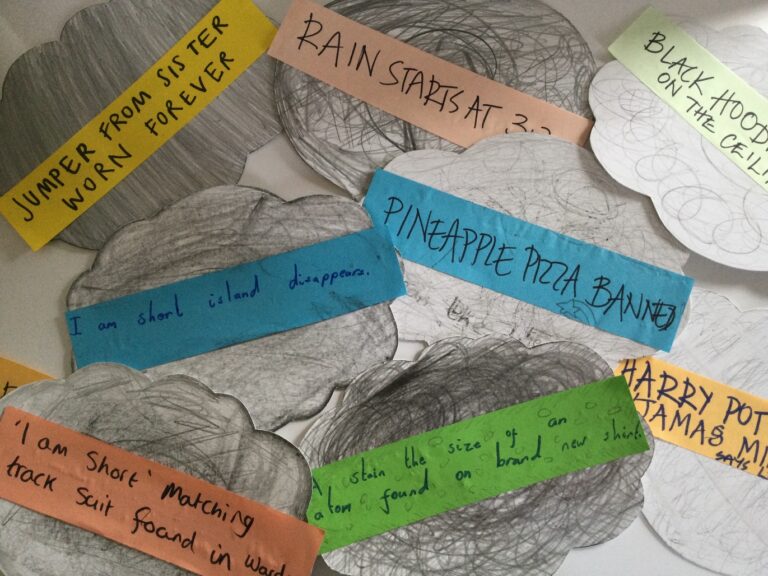 JUMPER FROM SISTER
WORN FOREVER
RAIN STARTS AT 3.2
BLACK HOOD
ON THE CEILI
PINEAPPLE PIZZA BANNED
I am short island disappears.
HARRY POT
JAMAS MI
SAYS
'I am Short' Matching
track suit found in ward
A stain the size of an
atom found on brand new shirt.